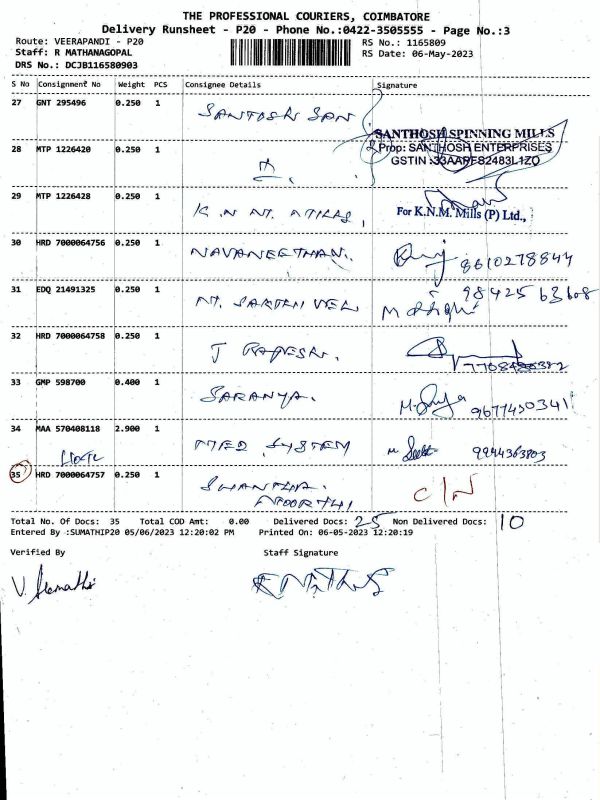 THE PROFESSIONAL COURIERS, COIMBATORE
Delivery Runsheet - P20 - Phone No.:0422-3505555 - Page No.:3
Route: VEERAPANDI - P20 RS No.: 1165809
Staff: R MATHANAGOPAL RS Date: 06-May-2023
DRS No.: DCJB116580903
S No Consignment No Weight PCS Consignee Details Signature
27 GNT 295496 0.250 1 SANTOSH SPN
SANTHOSH SPINNING MILLS
28 MTP 1226420 0.250 1 Prop: SANTHOSH ENTERPRISES
GSTIN :33AAPFS2483L1ZO
29 MTP 1226428 0.250 1 K.N M. MILLS,
For K.N.M. Mills (P) Ltd.,
30 HRD 7000064756 0.250 1 NAVANEETHAN. 8610278844
31 EDQ 21491325 0.250 1 M. SAKTHI VEL 98425 63608
32 HRD 7000064758 0.250 1 J RAJESH.
33 GMP 598700 0.400 1 SARANYA. 9677450341
34 MAA 570408118 2.900 1 MED SYSTEM 9944363803
35 HRD 7000064757 0.250 1 SHANTHA MOORTHI C/N
Total No. Of Docs: 35 Total COD Amt: 0.00 Delivered Docs: 25 Non Delivered Docs: 10
Entered By :SUMATHIP20 05/06/2023 12:20:02 PM Printed On: 06-05-2023 12:20:19
Verified By Staff Signature